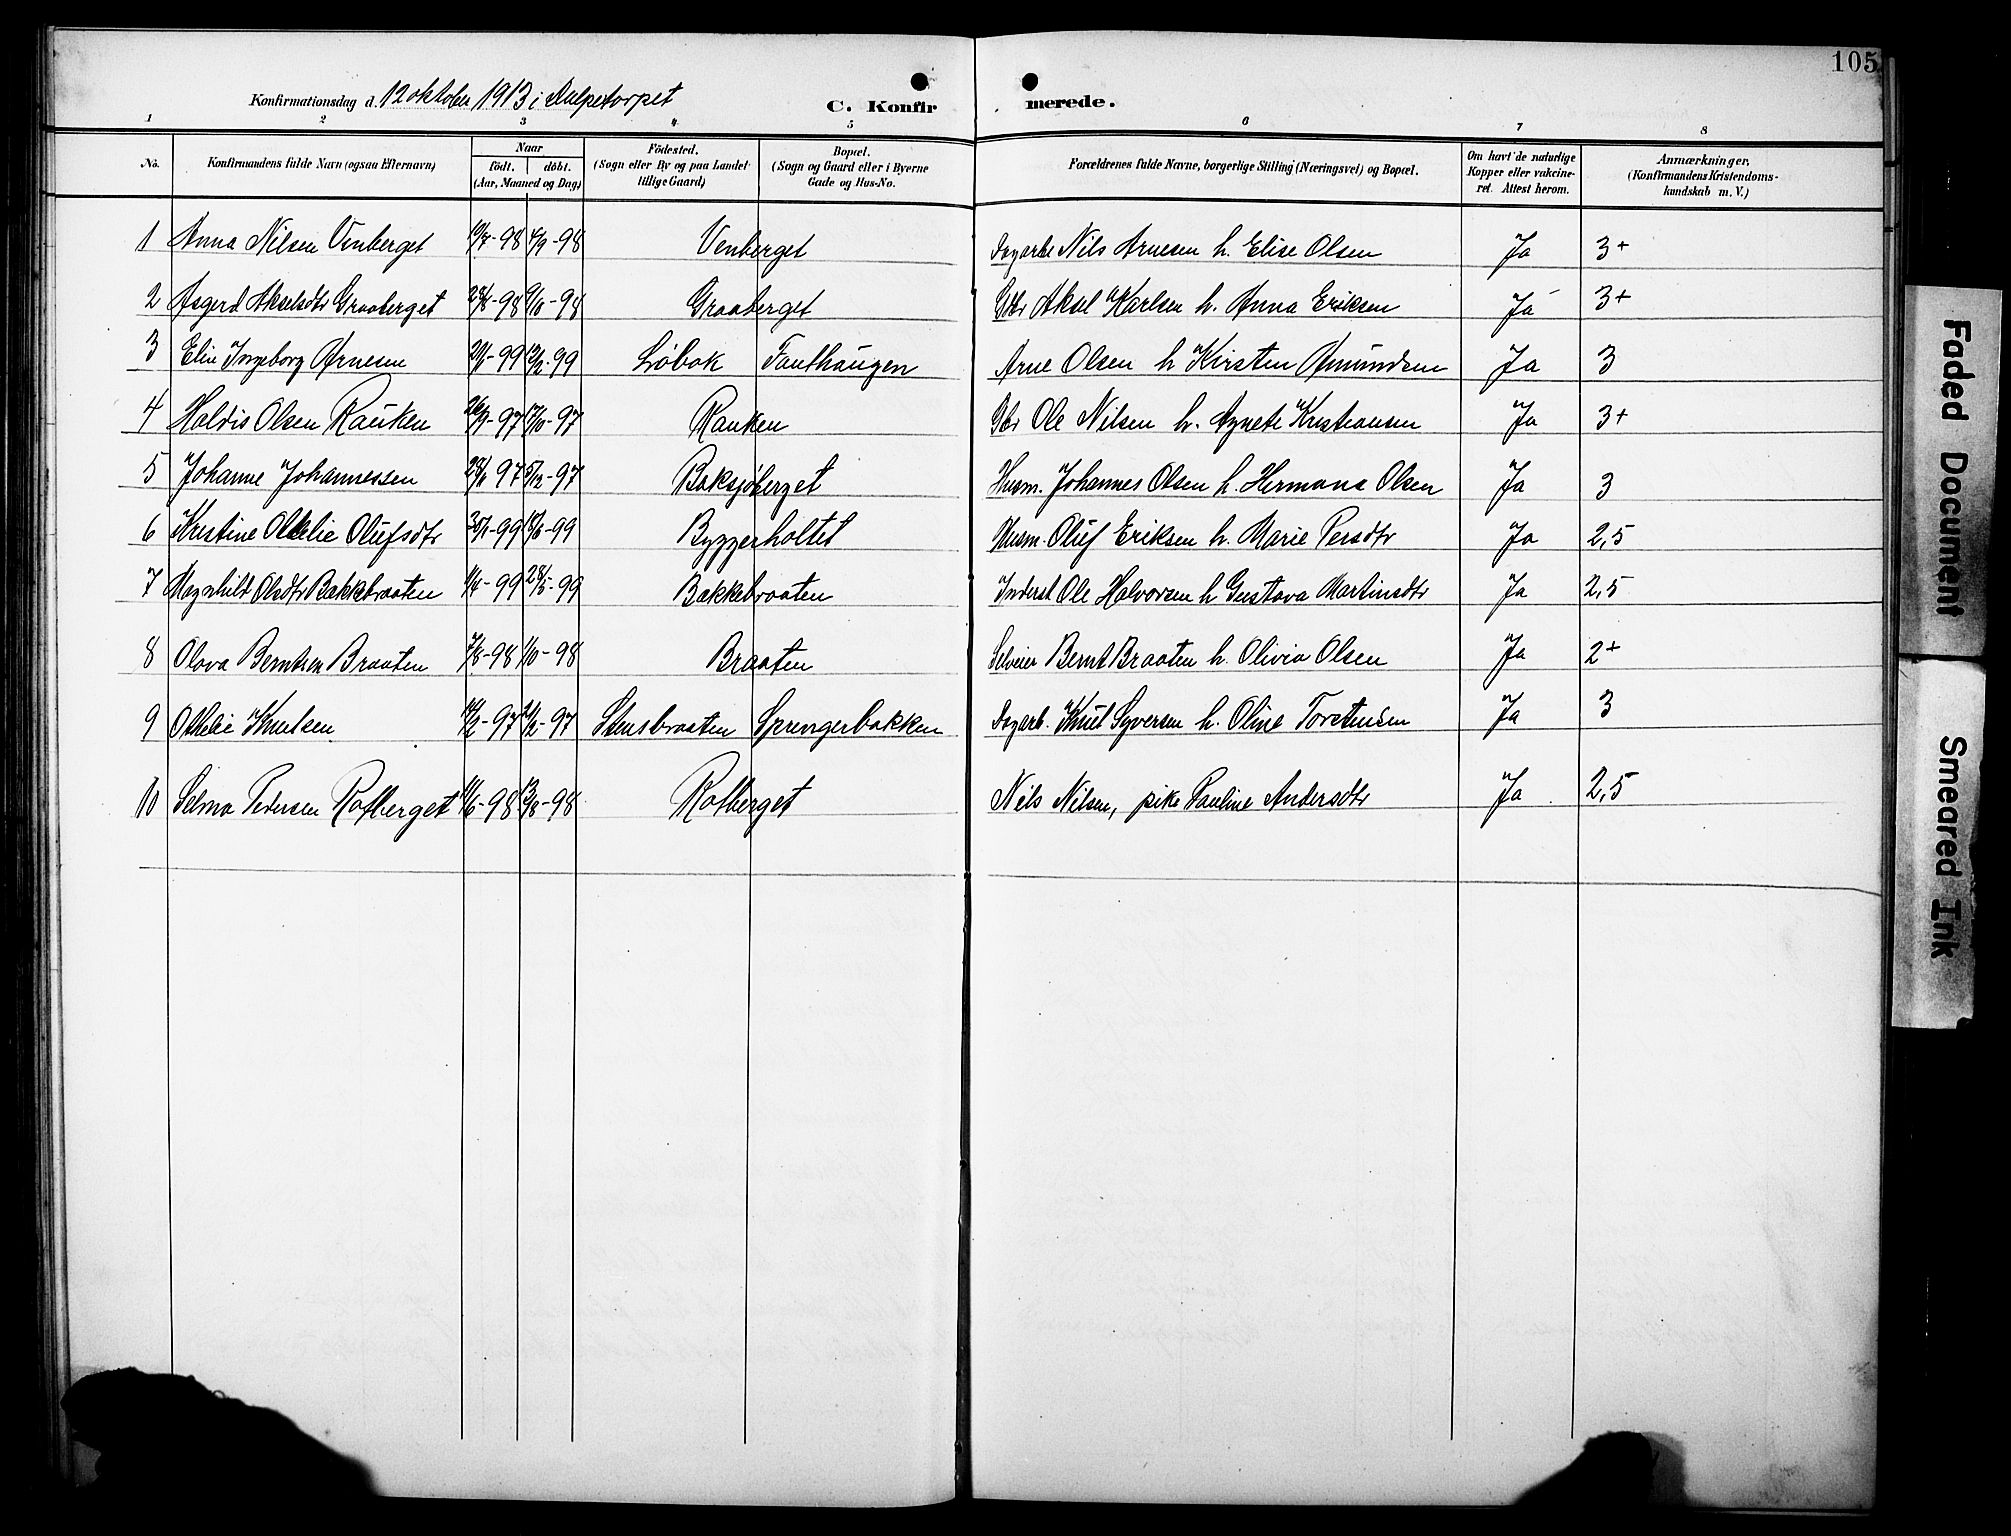 105
Konfirmationsdag d. 12 oktober 1913 i Kulpetorpet
C. Konfirmerede.
1 2 3 4 5 6 7 8
No. Konfirmandens fulde Navn (ogsaa Efternavn) Naar födt. döbt. (Aar, Maaned og Dag) Födested. (Sogn eller By og paa Landet tillige Gaard) Bopæl. (Sogn og Gaard eller i Byerne Gade og Hus-No. Forældrenes fulde Navne, borgerlige Stilling (Næringsvei) og Bopæl. Om havt de naturlige Kopper eller vakcineret. Attest herom. Anmærkninger. (Konfirmandens Kristendomskundskab m. V.)
1 Anna Nilsen Venberget -98 4/9-98 Venberget Dagarb Nils Arnesen h. Elise Olsen Ja 3+
2 Asgerd Akselsdtr Graaberget -98 9/10-98 Graaberget Gbr Aksel Karlsen h. Anna Eriksen Ja 3+
3 Elin Ingeborg Arnesen -99 12/2-99 Löbak Fauthaugen Arne Olsen h Kirsten Amundsen Ja 3
4 Haldis Olsen Rauken 26/9-97 17/10-97 Rauken Gbr Ole Nilsen h. Agnete Kristiansen Ja 3+
5 Johanne Johannessen 97 5/12-97 Baksjöberget Husm. Johannes Olsen h. Hermana Olsen Ja 3
6 Kristine Otelie Olufsdtr -99 -99 Byggerholtet Husm. Oluf Eriksen h. Marie Persdtr Ja 2,5
7 Magnhild Olsdtr Bakkebraaten 1/4-99 28/5-99 Bakkebraaten Inderst Ole Halvorsen h Gustava Martinsdtr Ja 2,5
8 Olava Berntsen Braaten 7/8-98 1/10-98 Braaten Selveier Bernt Braaten h. Olivia Olsen Ja 2+
9 Othelie Knutsen -97 -97 Stensbraaten Sprengerbakken Dagarb. Knut Syversen h. Oline Torstensen Ja 3
10 Selma Pedersen Rotberget 11/6-98 13/8-98 Rotberget Nils Nilsen, pike Pauline Andersdtr Ja 2,5
Faded Document
Smeared Ink